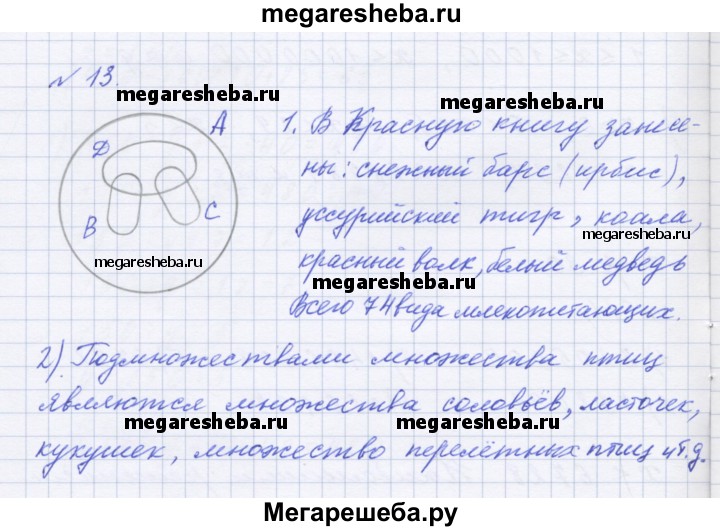 megaresheba.ru
№ 13.
megaresheba.ru
A
1. В Красную книгу занесе-
D
ны: снежный барс (ирбис),
уссурийский тигр, коала,
B
C
megaresheba.ru
megaresheba.ru
красный волк, белый медведь
megaresheba.ru
Всего 74 вида млекопитающих.
2) Подмножествами множества птиц
являются множества соловьёв, ласточек,
megaresheba.ru
megaresheba.ru
кукушек, множество перелётных птиц и т.д.
Мегарешеба.ру